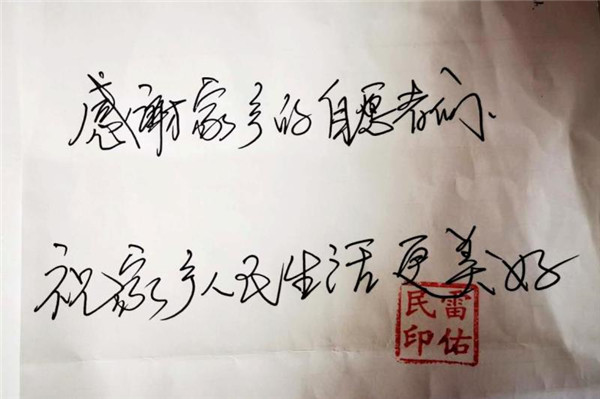 感谢家乡的自愿者们、
祝家乡人民生活更美好
雷佑
民印